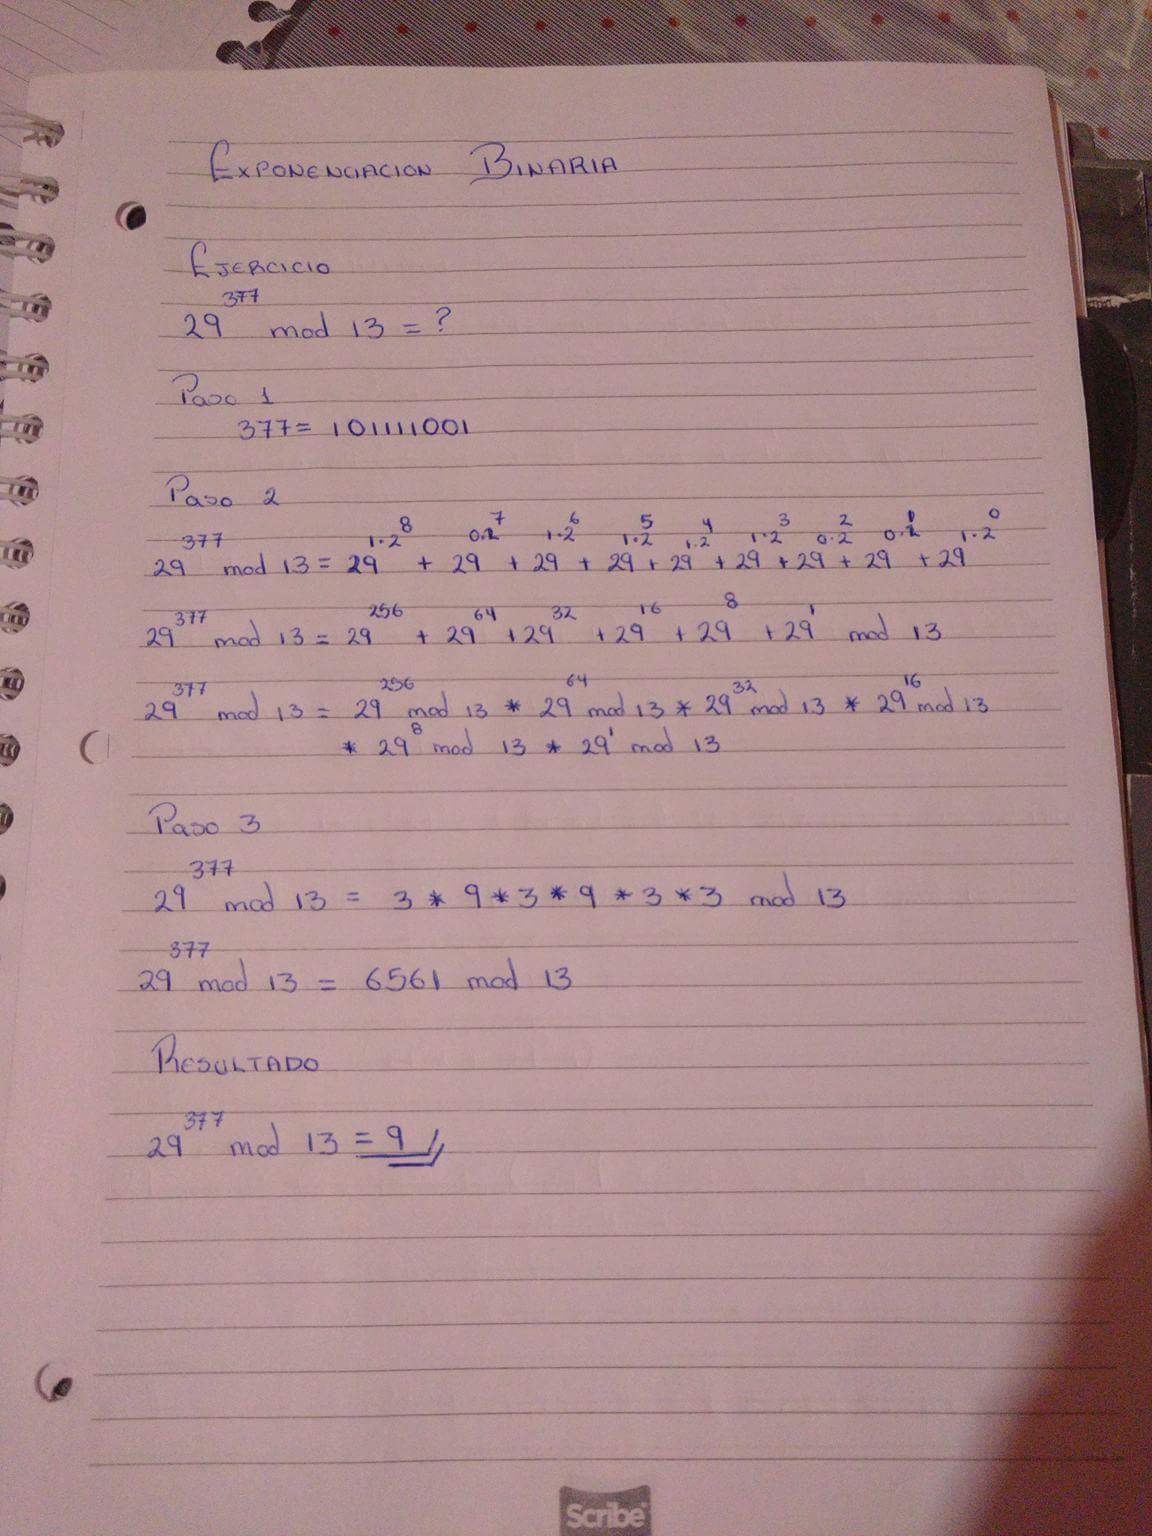 EXPONENCIACION BINARIA
EJERCICIO
29^377 mod 13 = ?
Paso 1
377 = 101111001
Paso 2
29^377 mod 13 = 29^1·2^8 + 29^0·2^7 + 29^1·2^6 + 29^1·2^5 + 29^1·2^4 + 29^1·2^3 + 29^0·2^2 + 29^0·2^1 + 29^1·2^0
29^377 mod 13 = 29^256 + 29^64 + 29^32 + 29^16 + 29^8 + 29^1 mod 13
29^377 mod 13 = 29^256 mod 13 * 29^64 mod 13 * 29^32 mod 13 * 29^16 mod 13
* 29^8 mod 13 * 29^1 mod 13
Paso 3
29^377 mod 13 = 3 * 9 * 3 * 9 * 3 * 3 mod 13
29^377 mod 13 = 6561 mod 13
RESULTADO
29^377 mod 13 = 9
Scribe